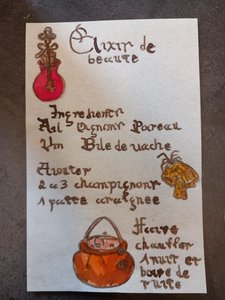 Elixir de
beaute
Ingredients
Ail Oignons Poireau
Vin Bile de vache
Ajouter
2 a 3 champignons
1 patte araignee
Faire
chauffer
1 nuit et
boire de
suite